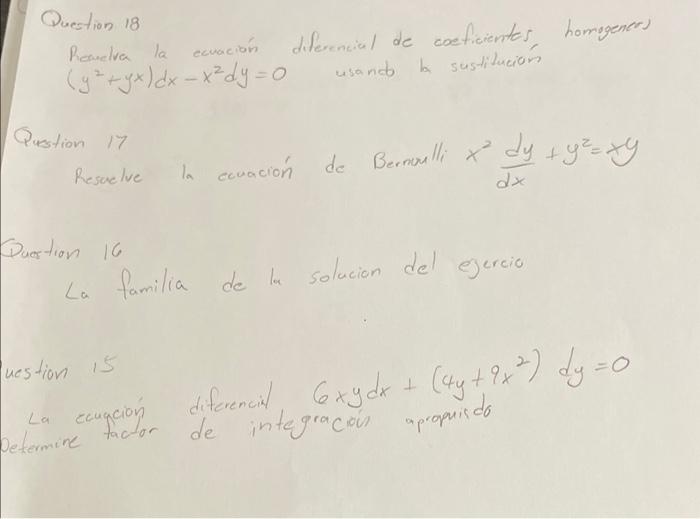 Question 18
Resuelva la ecuación diferencial de coeficientes homogeneos
(y²+yx)dx - x²dy = 0 usando la sustitución
Question 17
Resuelve la ecuación de Bernoulli x² dy/dx + y² = xy
Question 16
La familia de la solucion del ejercio
uestion 15
La ecuación diferencial 6xydx + (4y+9x²) dy = 0
Determine factor de integración